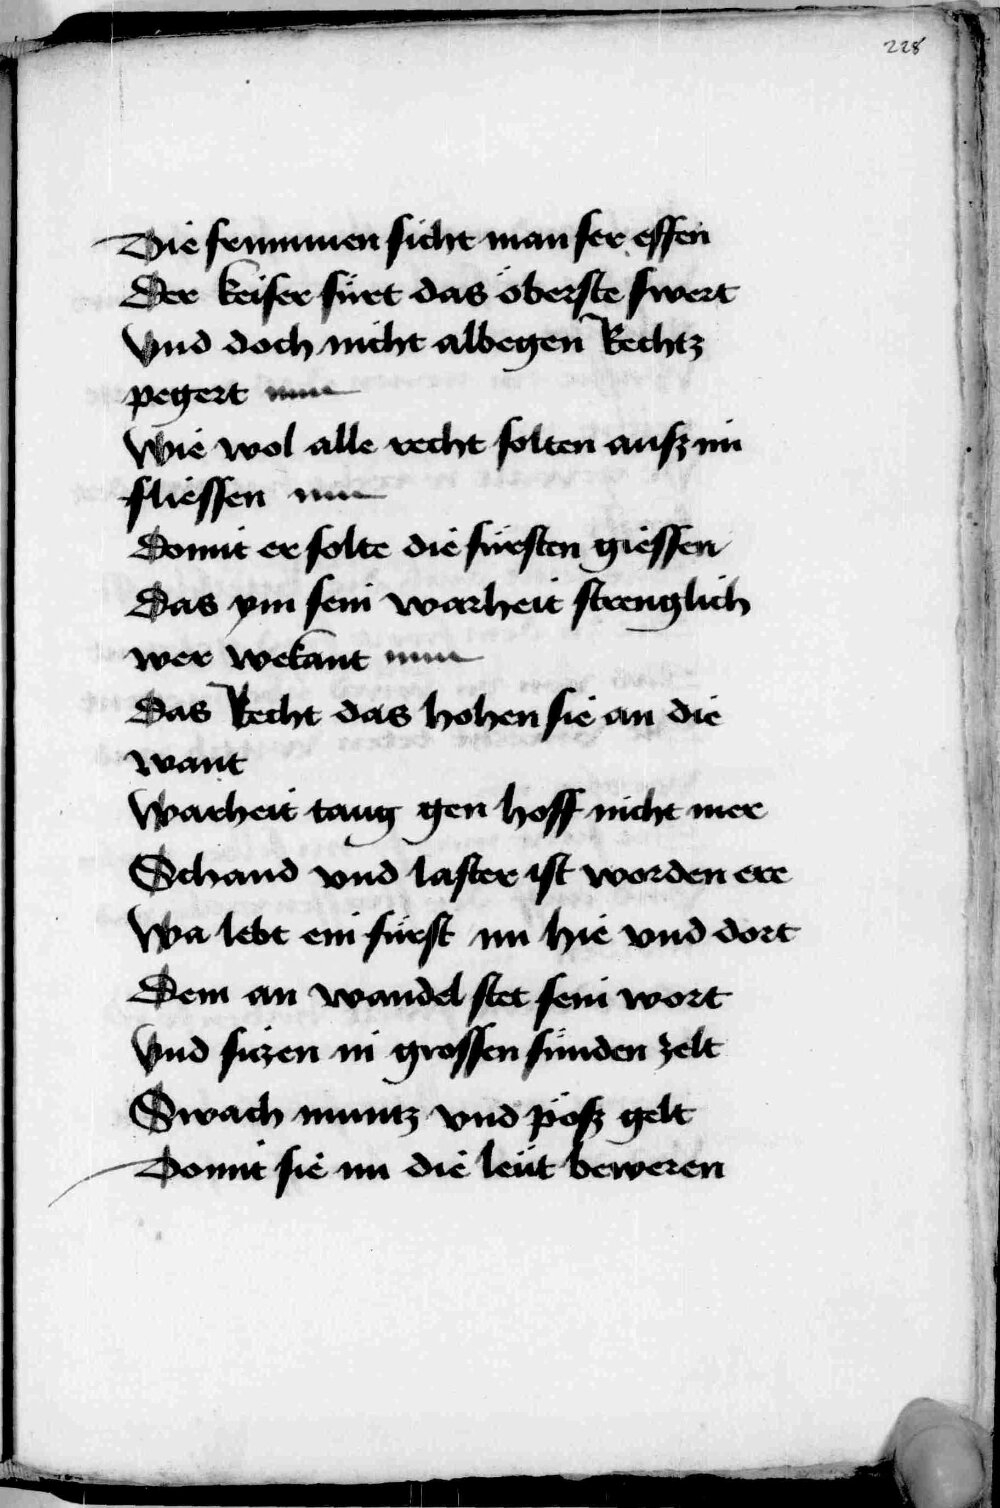 228
Die frummen sicht man ser essen
Der keiser fürt das öberste swert
Vnd doch nicht albegen Rechtz
pegert
Wie wol alle recht solten ausz im
fliessen
Domit er solte die fürsten giessen
Das ym sein warheit strenglich
wer wekant
Das Recht das hohen sie an die
want
Warheit taug gen hoff nicht mer
Schand vnd laster ist worden ere
Wa lebt ein fürst nu hie vnd dort
Dem an wandel stet sein wort
Vnd sitzen in grossen sünden zelt
Swach muntz vnd pösz gelt
Domit sie nu die leüt beweren